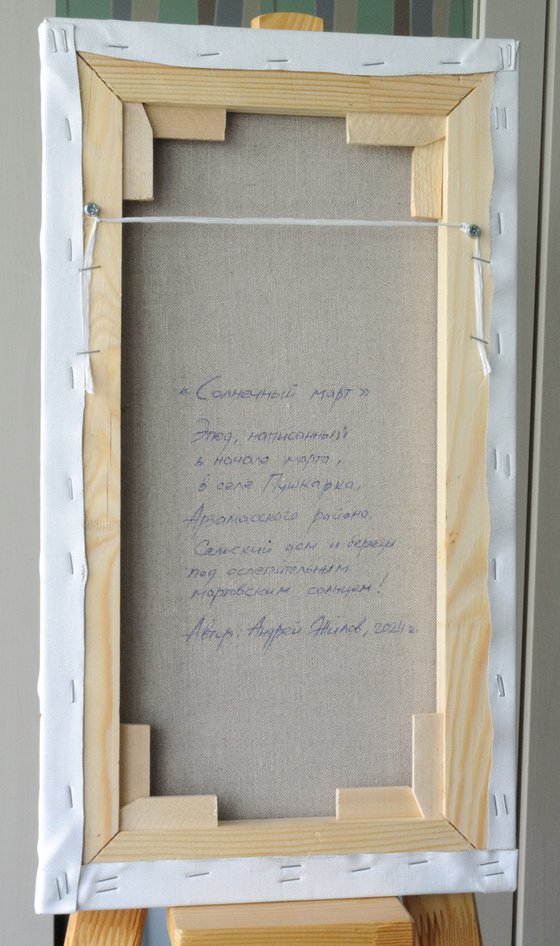 «Солнечный март»
Этюд, написанный
в начале марта,
в селе Пушкарка,
Арзамасского района.
Сельский дом и березы
под ослепительным
мартовским солнцем!
Автор: Андрей Жилов, 2024 г.